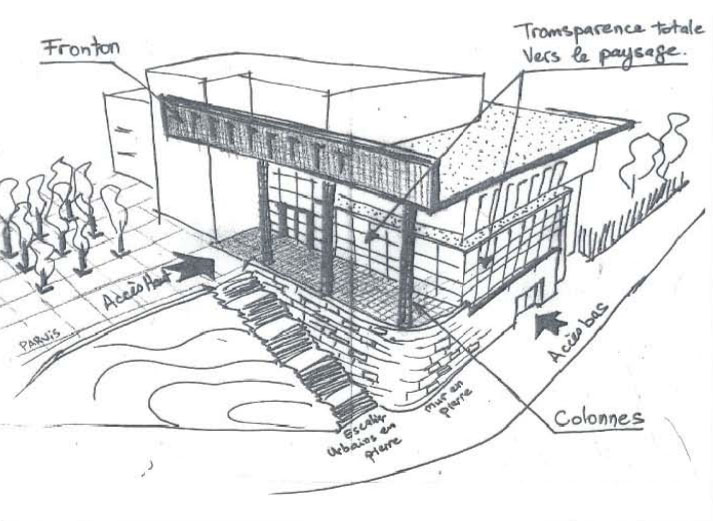 Fronton
Transparence totale
Vers le paysage.
Accès Haut
PARVIS
Accès bas
Mur en
pierre
Escalier
Urbains en
pierre
Colonnes